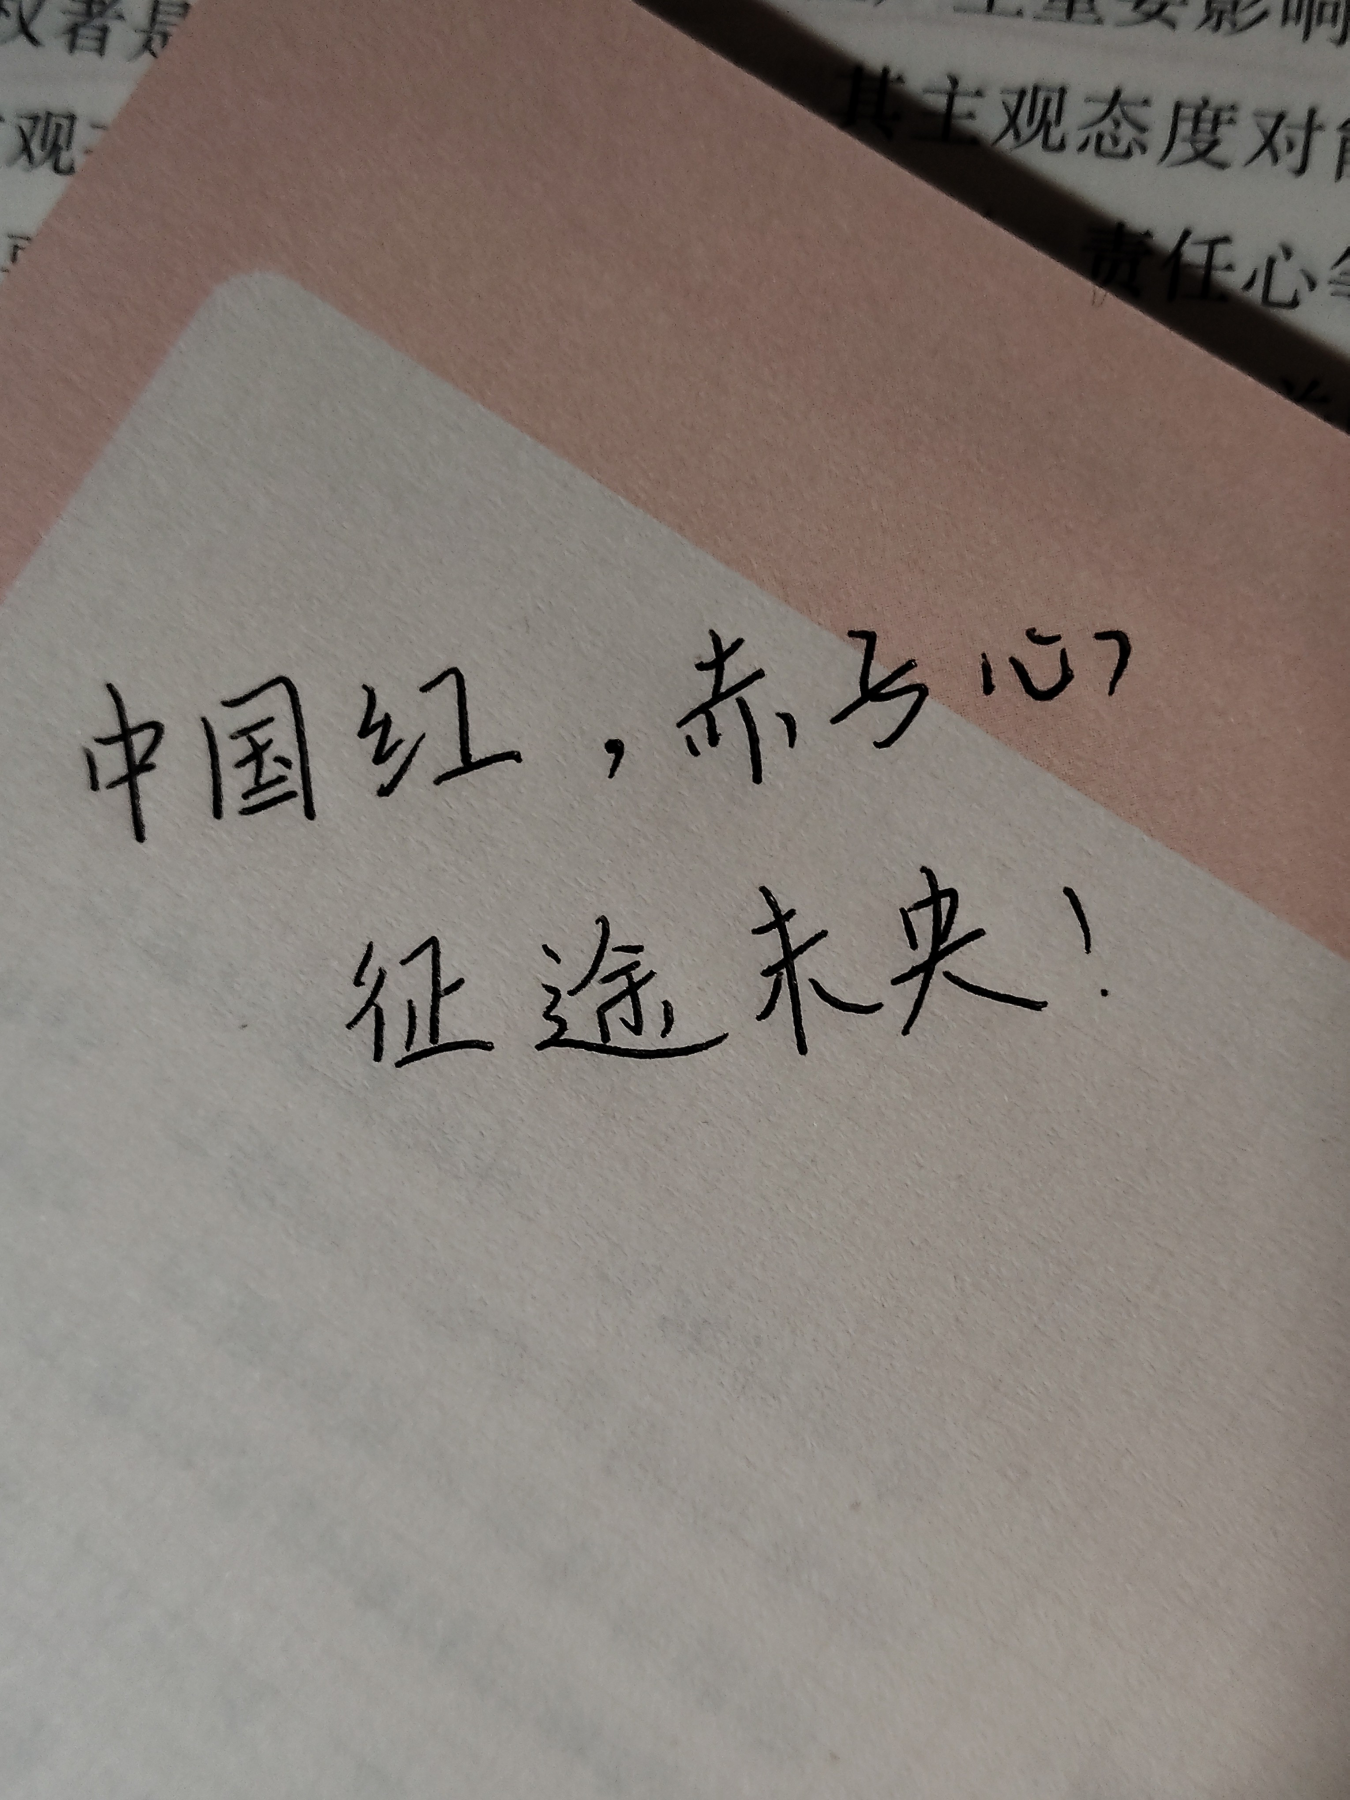 权者是
重要影响
观
其主观态度对
责任心
中国红，赤子心
征途未央！